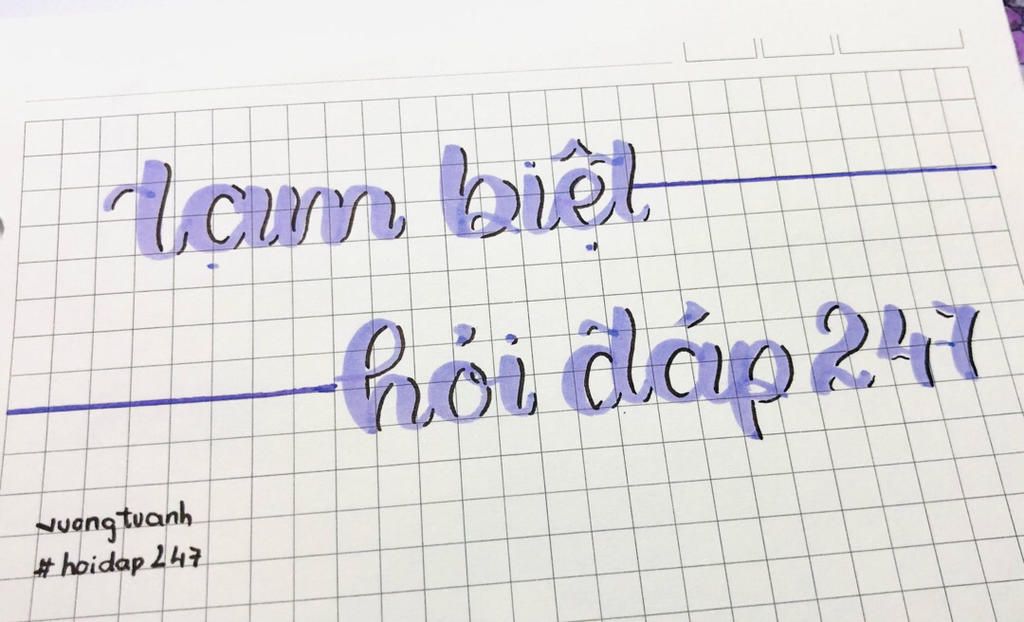 tạm biệt
hỏi đáp 247
vuongtuanh
#hoidap247